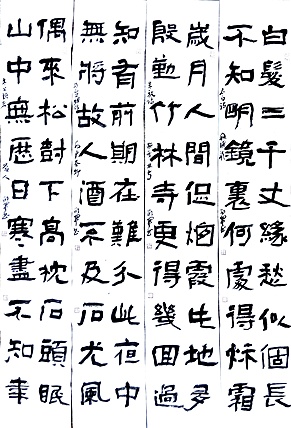 白髮三千丈緣愁似個長
不知明鏡裏何處得秋霜
歲月人間促煙霞此地多
殷勤竹林寺更得幾回過
知有前期在難分此夜中
無將故人酒不及石尤風
偶來松樹下高枕石頭眠
山中無歷日寒盡不知年